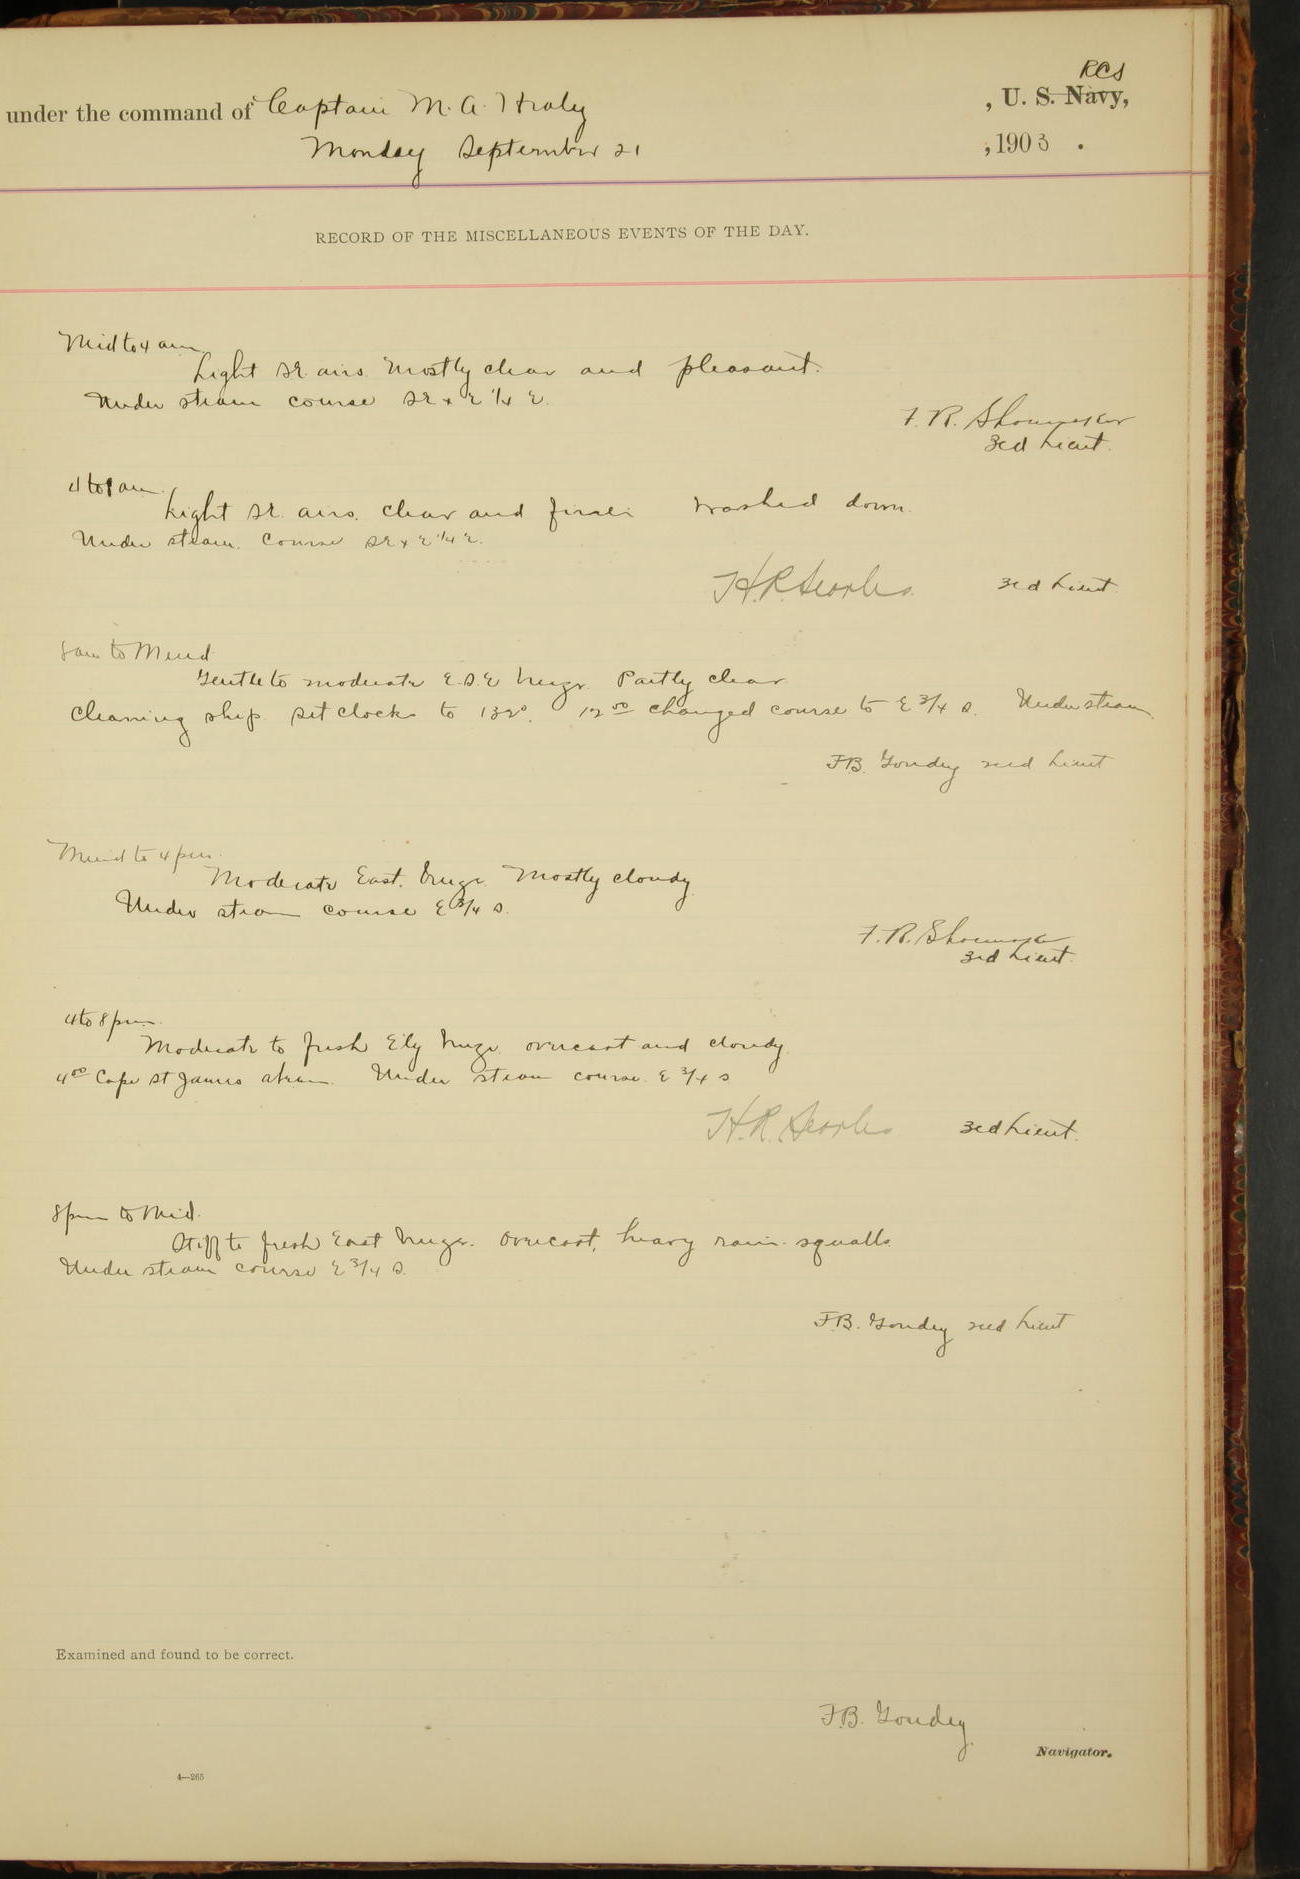 under the command of Captain M. A. Healy , U. S. Navy, RCS
Monday September 21 , 1903 .
RECORD OF THE MISCELLANEOUS EVENTS OF THE DAY.
Mid to 4 am
Light SE airs. Mostly clear and pleasant.
Under steam course SE x E 1/4 E.
F. R. Shoemaker
3rd Lieut.
4 to 8 am
Light SE. airs. clear and fine. Washed down.
Under steam. Course SE x E 1/4 E.
H. R. Searles 3rd Lieut
8 am to Merid
Gentle to moderate E.S.E breeze. Partly clear
Cleaning ship. Set clock to 132°. 12 00 changed course to E 3/4 S. Under steam
F.B. Goudey 2nd Lieut
Merid to 4 pm.
Moderate East. breeze Mostly cloudy
Under steam course E 3/4 S.
F. R. Shoemaker
3rd Lieut.
4 to 8 pm
Moderate to fresh E'ly breeze overcast and cloudy.
4 00 Cape St James abeam. Under steam course E 3/4 S
H. R. Searles 3rd Lieut.
8 pm to Mid.
Stiff to fresh East breeze. Overcast, heavy rain squalls.
Under steam course E 3/4 S.
F.B. Goudey 2nd Lieut
Examined and found to be correct.
F.B. Goudey
Navigator.
4—265